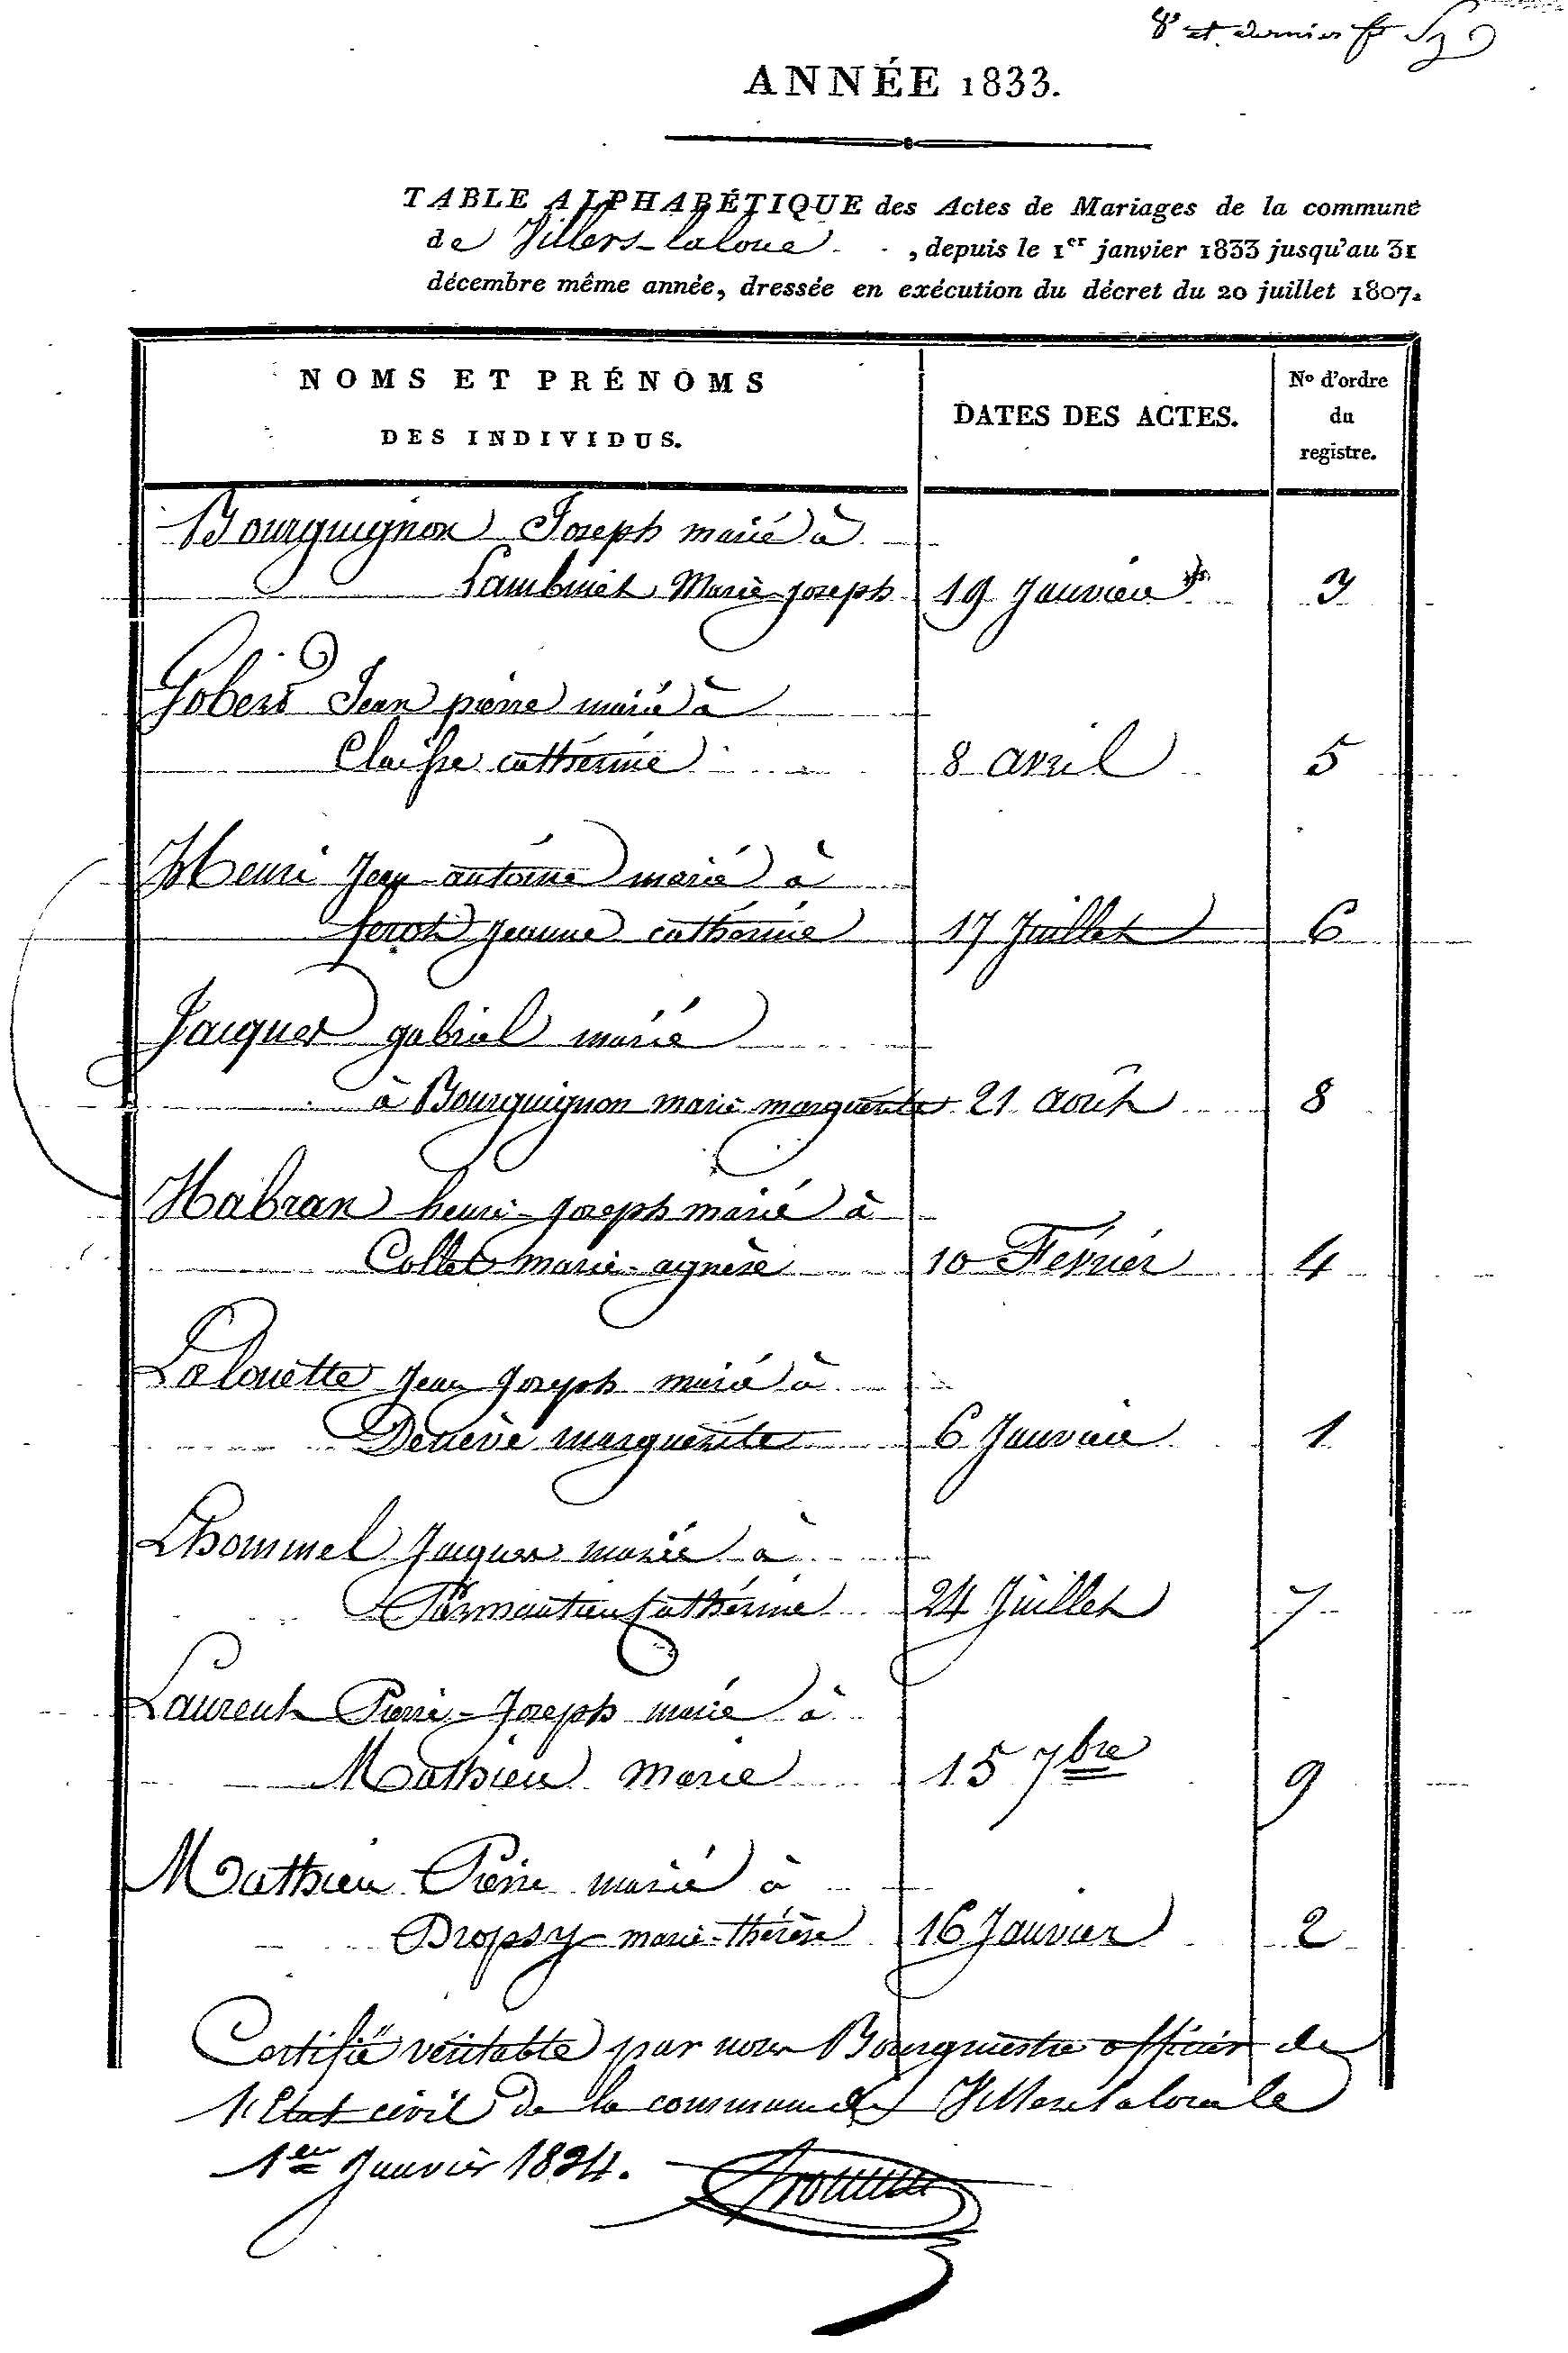 8e et dernier
ANNÉE 1833.
TABLE ALPHABÉTIQUE des Actes de Mariages de la commune
de Villers-laloue, depuis le 1er janvier 1833 jusqu'au 31
décembre même année, dressée en exécution du décret du 20 juillet 1807.
NOMS ET PRÉNOMS
DES INDIVIDUS.
DATES DES ACTES.
No d'ordre
du
registre.
Bourguignon Joseph marié à
Lambinet Marie joseph 19 Janvier 3
Jean pierre marié à
Claisse catherine 8 avril 5
Henri Jean antoine marié à
jeanne catherine 17 Juillet 6
Jacques gabriel marié
à Bourguignon marie marguerite 21 août 8
Habran henri-joseph marié à
Collet marie-agnese 10 Février 4
Lalouette Jean Joseph marié à
marguerite 6 Janvier 1
Lhommel Jacques marié à
Parmantier Cathérine 24 Juillet 7
Laurent Pierre-Joseph marié à
Mathieu marie 15 7bre 9
Mathieu Pierre marié à
Dropsy marie-thérèse 16 Janvier 2
Certifié véritable par nous Bourgmestre officier de
l'Etat civil de la commune de Villers laloue le
1er Janvier 1834.